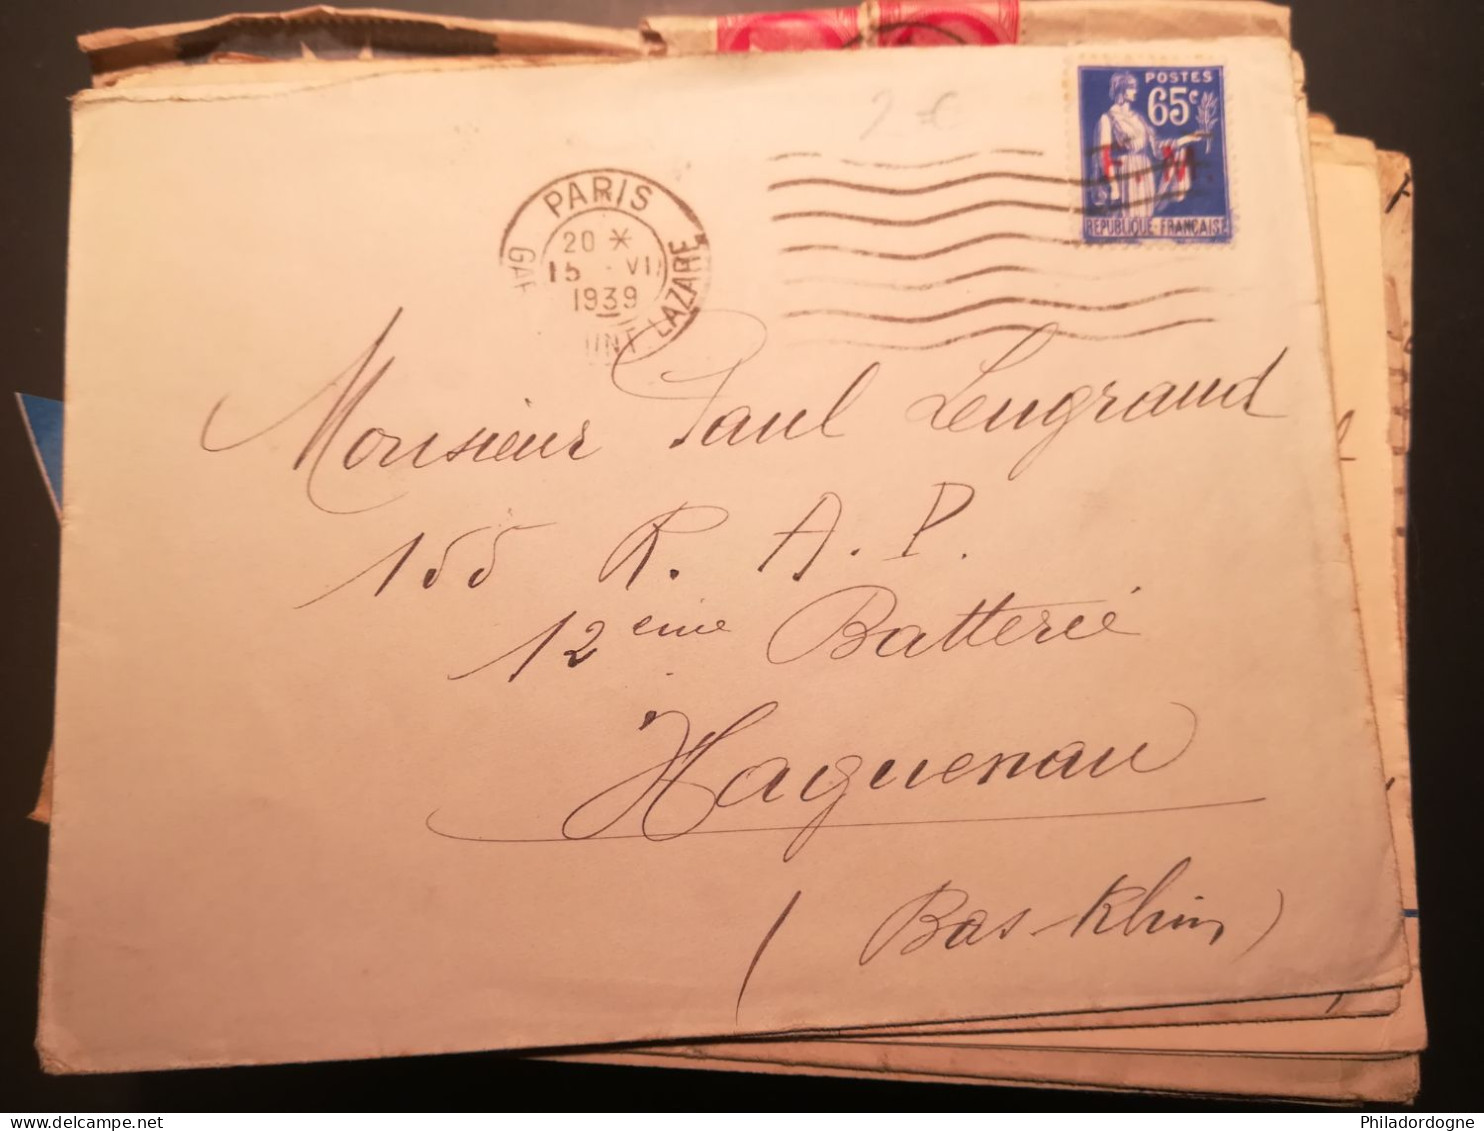 2 €
POSTES
65c
F. M.
REPUBLIQUE FRANCAISE
PARIS
20 *
15 VII
1939
GARE
LAZARE
Monsieur Paul Lengrand
155 R. A. P.
12ème Batterie
Haguenau
(Bas-Rhin)
Philadordogne